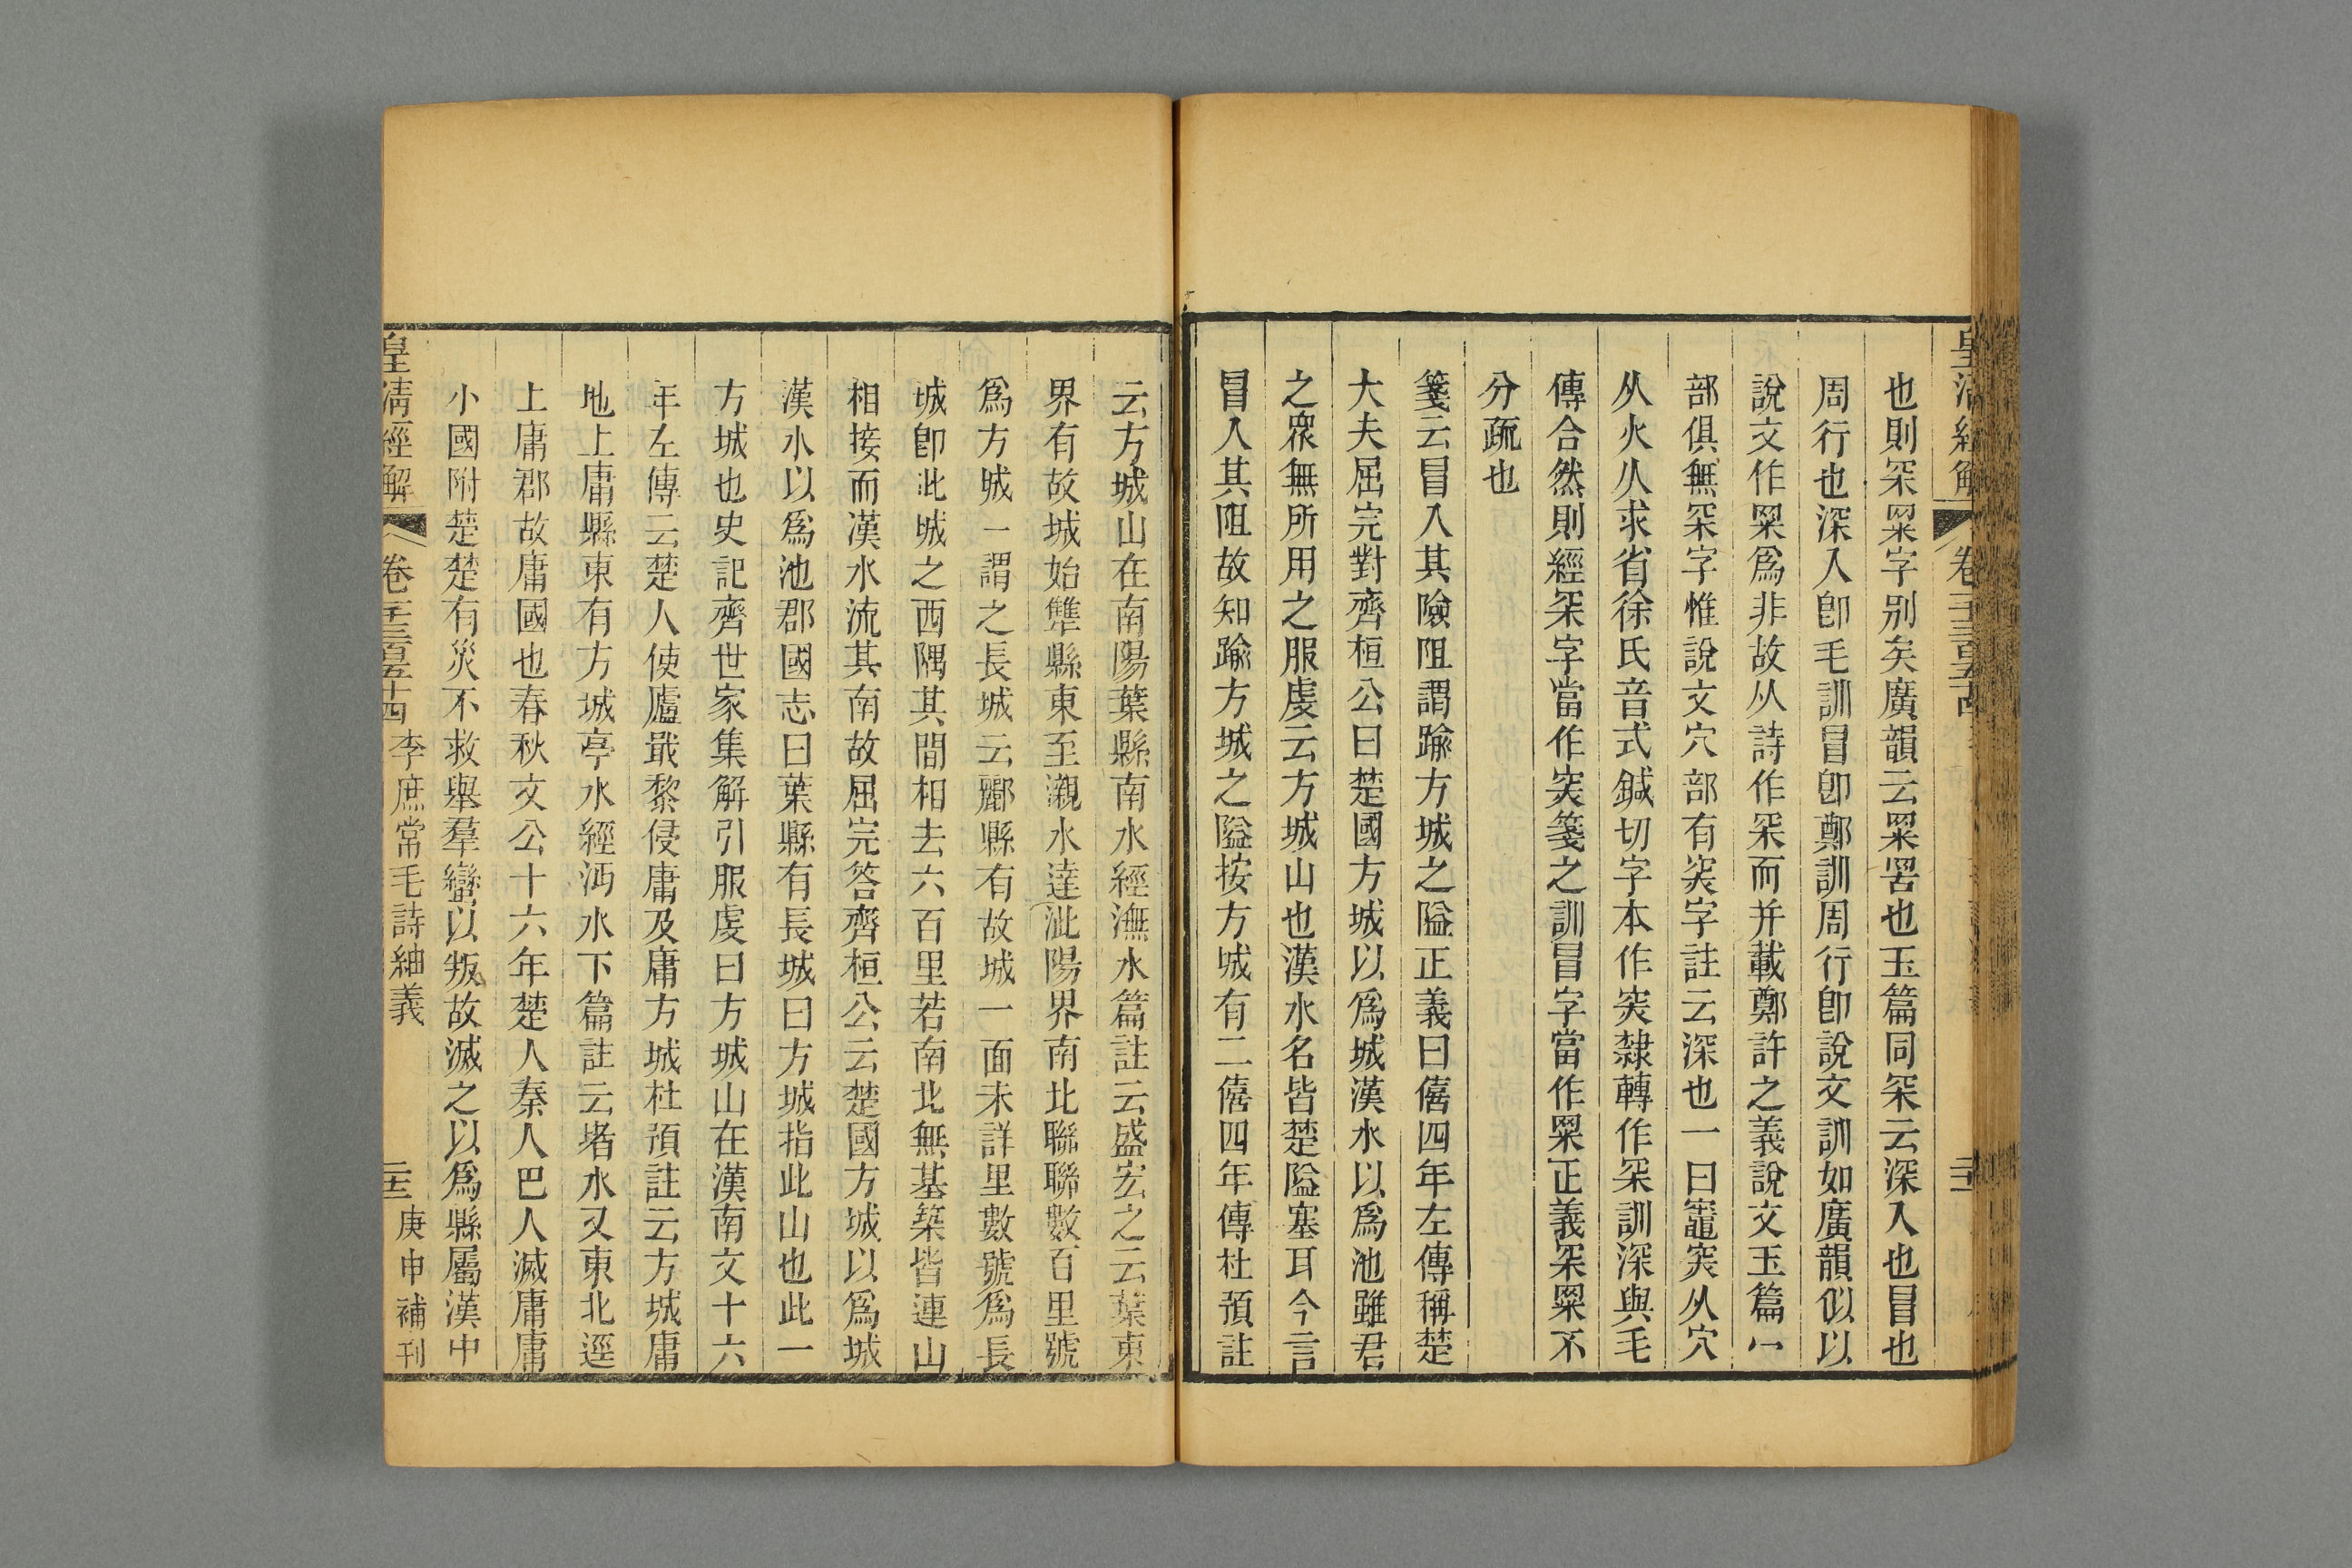 皇清經解
卷一千三百五十四
也則罙㮈字別矣廣韻云㮈罟也玉篇同罙云深入也冒也
周行也深入卽毛訓冒卽鄭訓周行卽說文訓如廣韻似以
說文作㮈爲非故从詩作罙而并載鄭許之義說文玉篇冖
部俱無罙字惟說文穴部有㝥字註云深也一曰竈突从穴
从火从求省徐氏音式鍼切字本作突隸轉作罙訓深與毛
傳合然則經罙字當作突箋之訓冒字當作㮈正義罙㮈不
分疏也
箋云冒入其險阻謂踰方城之隘正義曰僖四年左傳稱楚
大夫屈完對齊桓公曰楚國方城以爲城漢水以爲池雖君
之眾無所用之服虔云方城山也漢水名皆楚隘塞耳今言
冒入其阻故知踰方城之隘按方城有二僖四年傳杜預註
云方城山在南陽葉縣南水經潕水篇註云盛宏之云葉東
界有故城始犨縣東至瀙水達沘陽界南北聯聯數百里號
爲方城一謂之長城云酈縣有故城一面未詳里數號爲長
城卽此城之西隅其間相去六百里若南北無基築皆連山
相接而漢水流其南故屈完答齊桓公云楚國方城以爲城
漢水以爲池郡國志曰葉縣有長城曰方城指此山也此一
方城也史記齊世家集解引服虔曰方城山在漢南文十六
年左傳云楚人使廬戢黎侵庸及庸方城杜預註云方城庸
地上庸縣東有方城亭水經沔水下篇註云堵水又東北逕
上庸郡故庸國也春秋文公十六年楚人秦人巴人滅庸庸
小國附楚楚有災不救舉羣蠻以叛故滅之以爲縣屬漢中
皇清經解
卷一千三百五十四
李庶常毛詩紬義
庚申補刊